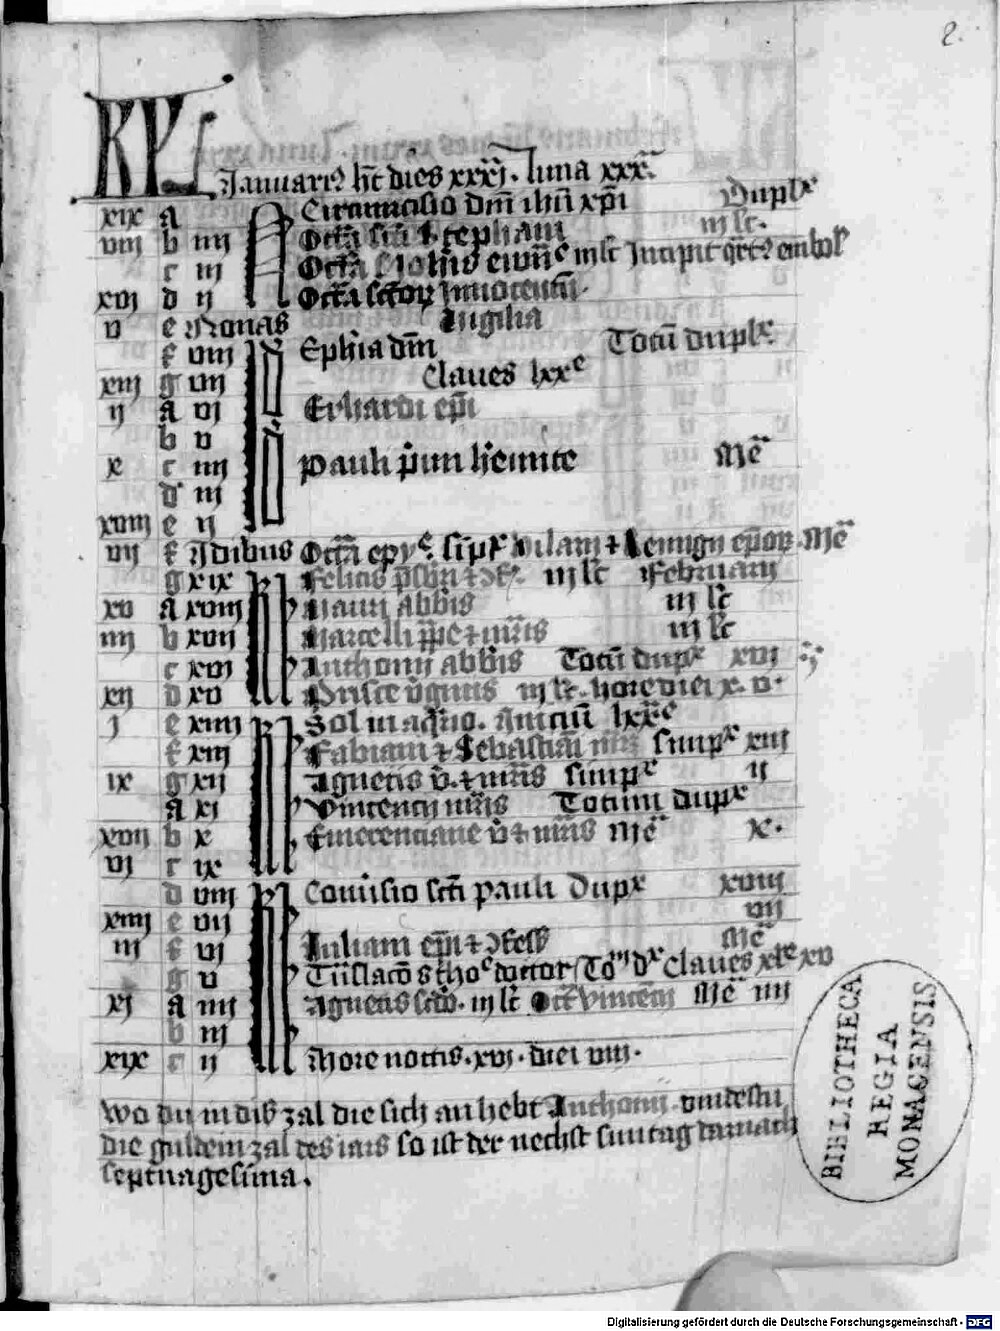 2.
KL
Januariꝰ hꝫ dies xxxj. luna xxx
xix a Circumcisio dm̅ ihu̅ xp̅i Duplx
viij b iiij Octa̅ sc̅i Stephani iij lc̅.
c iij Octa̅ iij lc̅ Incipit
xvj d ij Octa̅ sc̅toꝝ Innocentu̅.
v e Nonas Vigilia
f viij Ephia dm̅ Totu̅ duplx
xiij g vij Claues lxxe
ij a vj Erhardi ep̅i
b v
x c iiij Pauli p̅im h̅emite Me̅
d iij
xviij e ij
vij f Idibus Octa̅ simpx hilarij ⁊ Remigij ep̅oꝝ Me̅
g xix Felicis iij lc̅ Februarij
xv a xviij Mauri abb̅is iij lc̅
iiij b xvij Marcelli pp̅e ⁊ mr̅is iij lc̅
c xvj Anthonij abb̅is Totu̅ dupx xvij
xij d xv Prisce v̅ginis iij lc̅. hore diei x. v.
j e xiiij Sol in aq̅rio. Iniciu̅ lxxe
f xiij Fabiani ⁊ Sebastiani mr̅ simpx xiij
ix g xij Agnetis v̅. ⁊ mr̅is simpx ij
a xj Vincencij mr̅is Totum dupx
xvij b x Emerenciane v̅ ⁊ mr̅is Me̅ x.
vj c ix
d viij Conu̅sio sc̅ti Pauli Dupx xviij
xiiij e vij vij
iij f vj Iuliani ep̅i ⁊ ꝯfess Me̅
g v Tn̅slaco̅ s tho doctor To dx Claues xle xv
xj a iiij Agnetis scd̅o. iij lc̅ Octa̅ Vincen̅ Me̅ iiij
b iij
xix c ij Hore noctis. xvj. diei viij.
Wo du in dis zal die sich an hebt Anthonij vindestu
die gulden zal des iars so ist der nechst suntag darnach
septuagesima.
BIBLIOTHECA
REGIA
MONACENSIS
Digitalisierung gefördert durch die Deutsche Forschungsgemeinschaft - DFG